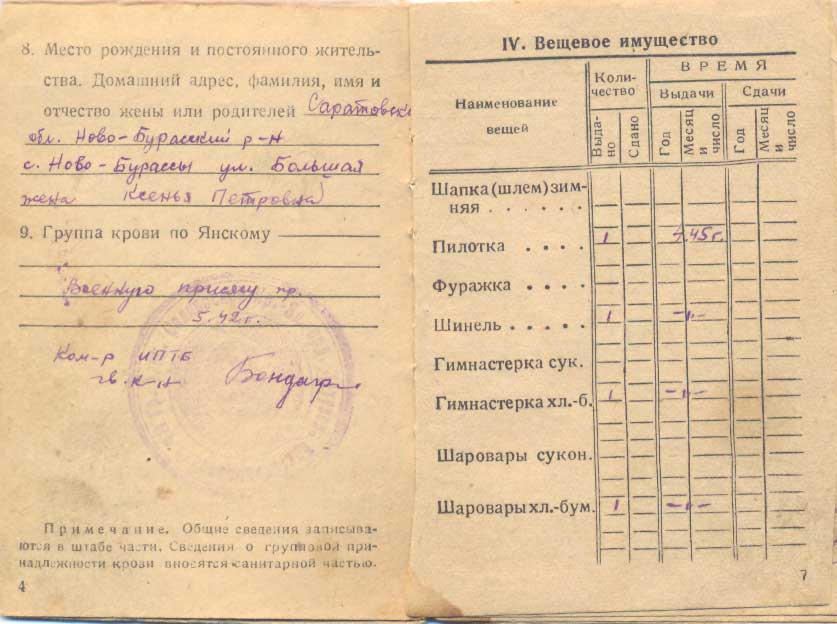 8. Место рождения и постоянного житель-
ства. Домашний адрес, фамилия, имя и
отчество жены или родителей Саратовск
обл. Ново-Бурасский р-н
с. Ново-Бурассы ул. Большая
жена Ксенья Петровна
9. Группа крови по Янскому
Военную присягу пр.
5.42 г.
Ком-р ИПТБ
гв. к-н
Примечание. Общие сведения записыва-
ются в штабе части. Сведения о групповой при-
надлежности крови вносятся санитарной частью.
4
IV. Вещевое имущество
Наименование вещей
Коли-
чество
ВРЕМЯ
Выдачи
Сдачи
Выда-
но
Сдано
Год
Месяц
и
число
Год
Месяц
и
число
Шапка (шлем) зим-
няя . . . . . .
Пилотка . . . . 1 4.45 г.
Фуражка . . . .
Шинель . . . . . 1 -"-
Гимнастерка сук.
Гимнастерка хл.-б. 1 -"-
Шаровары сукон.
Шаровары хл.-бум. 1 -"-
7